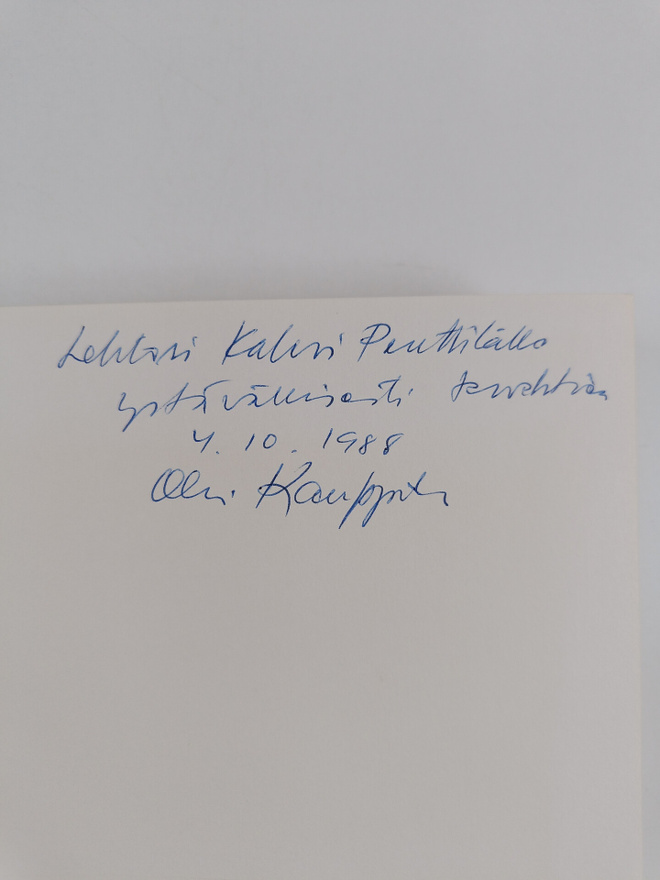 Lehtori Kalevi Penttilälle
ystävällisesti tervehtien
4. 10. 1988
Olli Kauppila